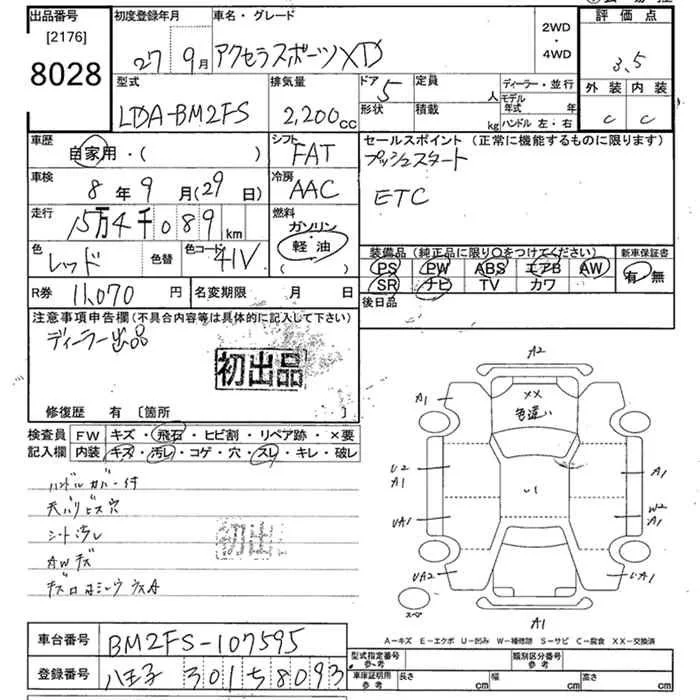 出品番号
[2176]
8028
初度登録年月
27 9月
車名・グレード
アクセラスポーツXD
2WD
・
4WD
評価点
3.5
外装 内装
C C
型式
LDA-BM2FS
排気量
2,200cc
ドア 5
形状
定員 人
積載 kg
ディーラー・並行
モデル年式 年
ハンドル 左・右
車歴
自家用・( )
シフト
FAT
セールスポイント(正常に機能するものに限ります)
プッシュスタート
ETC
車検
8年9月(29日)
冷房
AAC
走行
15万4千089km
燃料
ガソリン・
軽油
( )
色
レッド
色替
色コード
41V
装備品(純正品に限り○をつけてください)
PS PW ABS エアB AW
SR ナビ TV カワ
新車保証書
有・無
R券 11,070円
名変期限 月 日
後日品
注意事項申告欄(不具合内容等は具体的に記入して下さい)
ディーラー出品
初出品
修復歴 有〔箇所 〕
検査員 FW キズ・飛石・ヒビ割・リペア跡・×要
記入欄 内装 キズ・汚レ・コゲ・穴・スレ・キレ・破レ
ハンドルカバー付
天バリビス穴
シート汚レ
AWキズ
初出
A2
A1
XX
色違い
U2
A1
A1
U1
UA1
W2
A1
UA2
A1
スペ
A1
A-キズ E-エクボ U-凹み W-補修跡 S-サビ C-腐食 XX-交換済
車台番号 BM2FS-107595
登録番号 八王子 301 5 8093
型式指定番号
参考
類別区分番号
参考
車庫証明用
参考
長さ cm 幅 cm 高さ cm